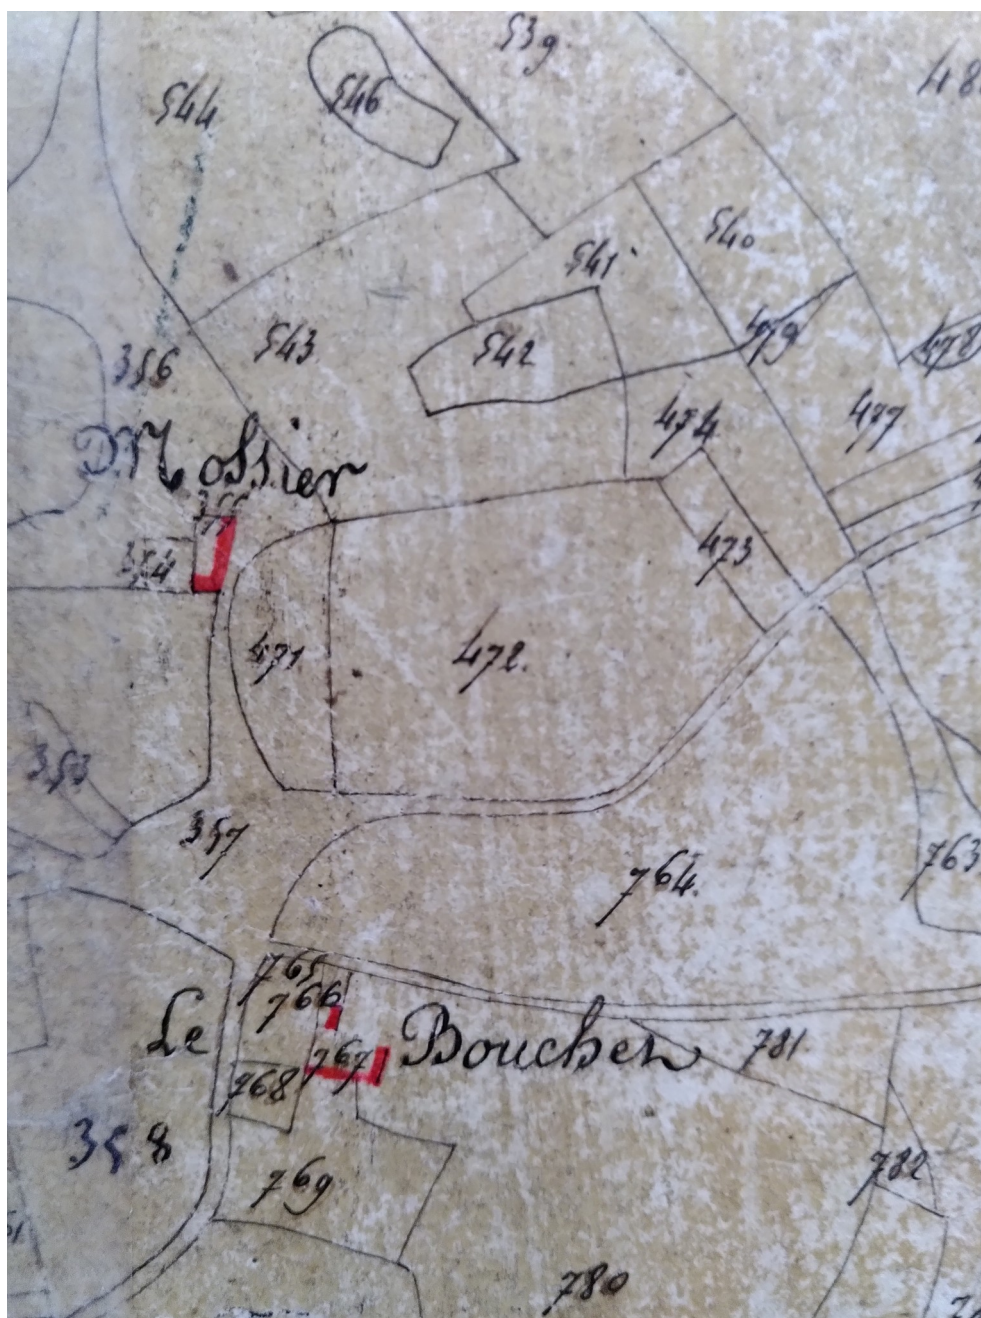 539
544
546
48
540
541
543
542
479
478
356
474
477
D. Mossier
355
354
473
471
472.
353
357
764.
763
765
766
Le Boucher
781
767
768
358
782
769
780